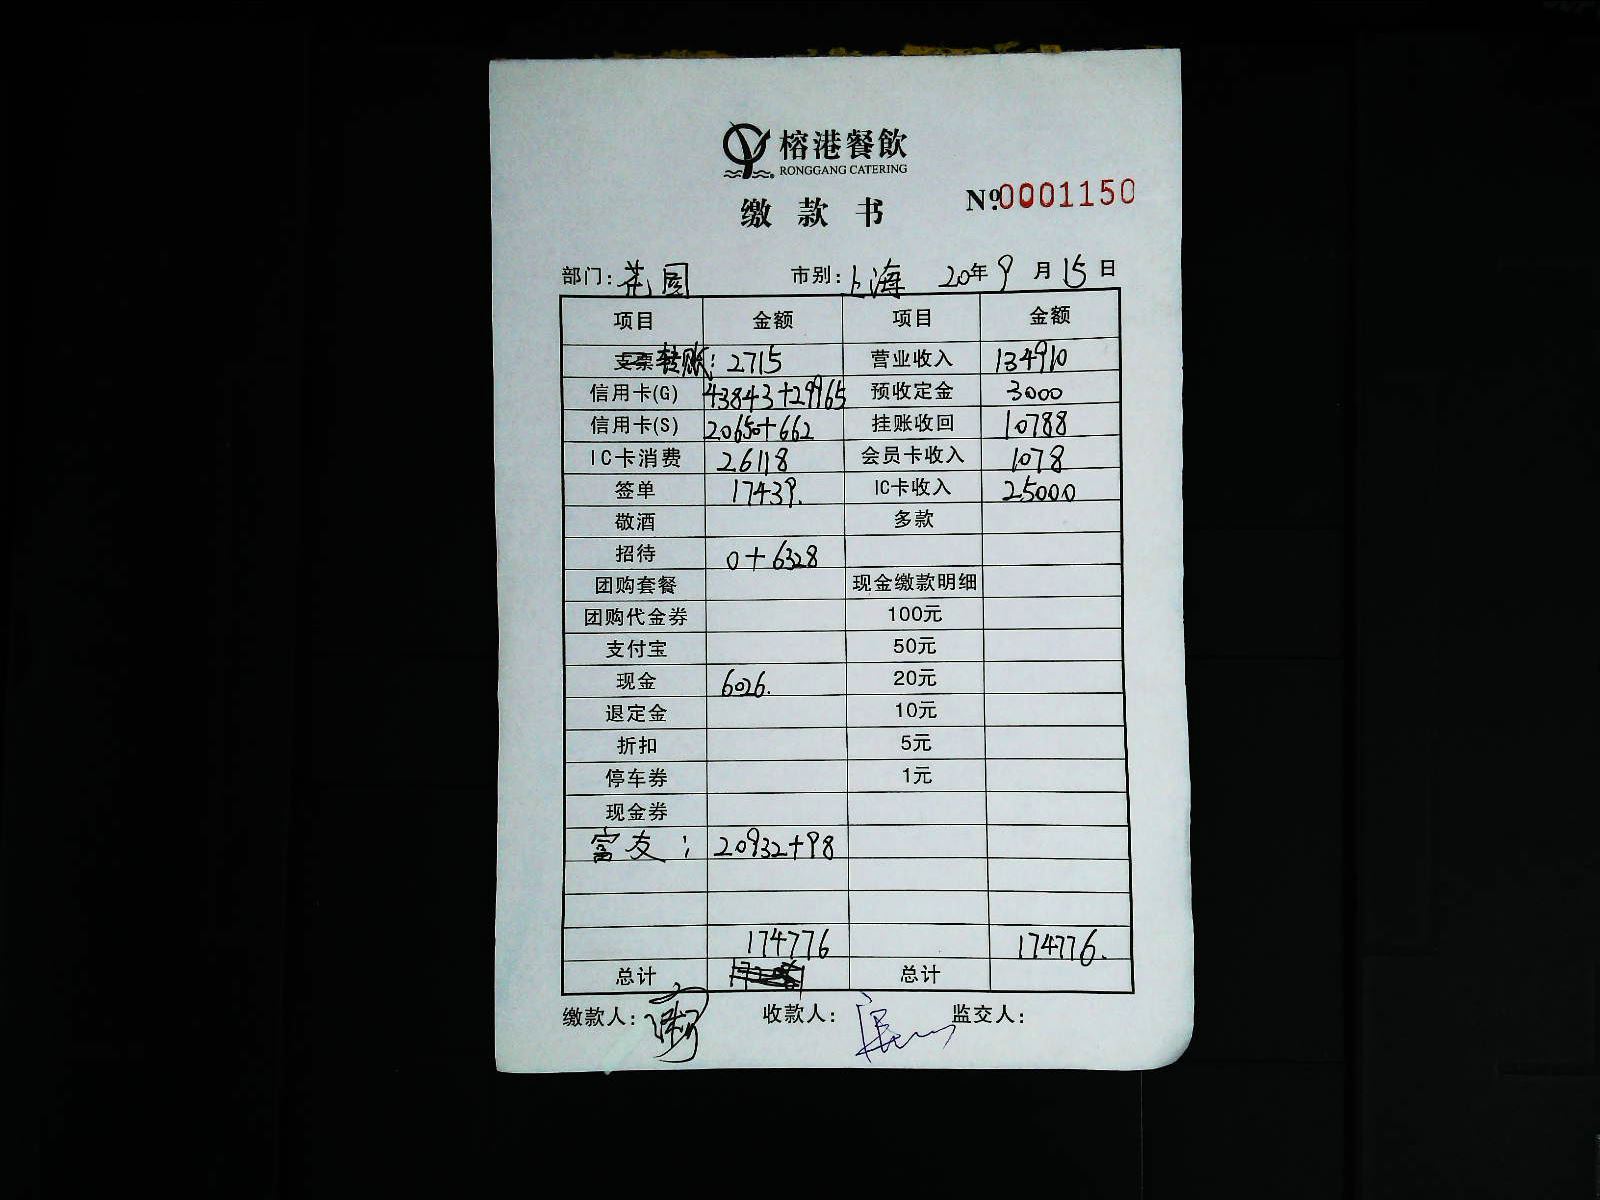 榕港餐飲
RONGGANG CATERING
缴款书
№0001150
部门: 花园 市别: 上海 20年9月15日
项目 金额 项目 金额
支票 转账: 2715 营业收入 134910
信用卡(G) 43843+29965 预收定金 3000
信用卡(S) 20650+662 挂账收回 10788
IC卡消费 26118 会员卡收入 1078
签单 17439. IC卡收入 25000
敬酒 多款
招待 0+6328
团购套餐 现金缴款明细
团购代金券 100元
支付宝 50元
现金 6026. 20元
退定金 10元
折扣 5元
停车券 1元
现金券
富友: 20932+98
174776 174776.
总计 总计
缴款人: 收款人: 监交人: